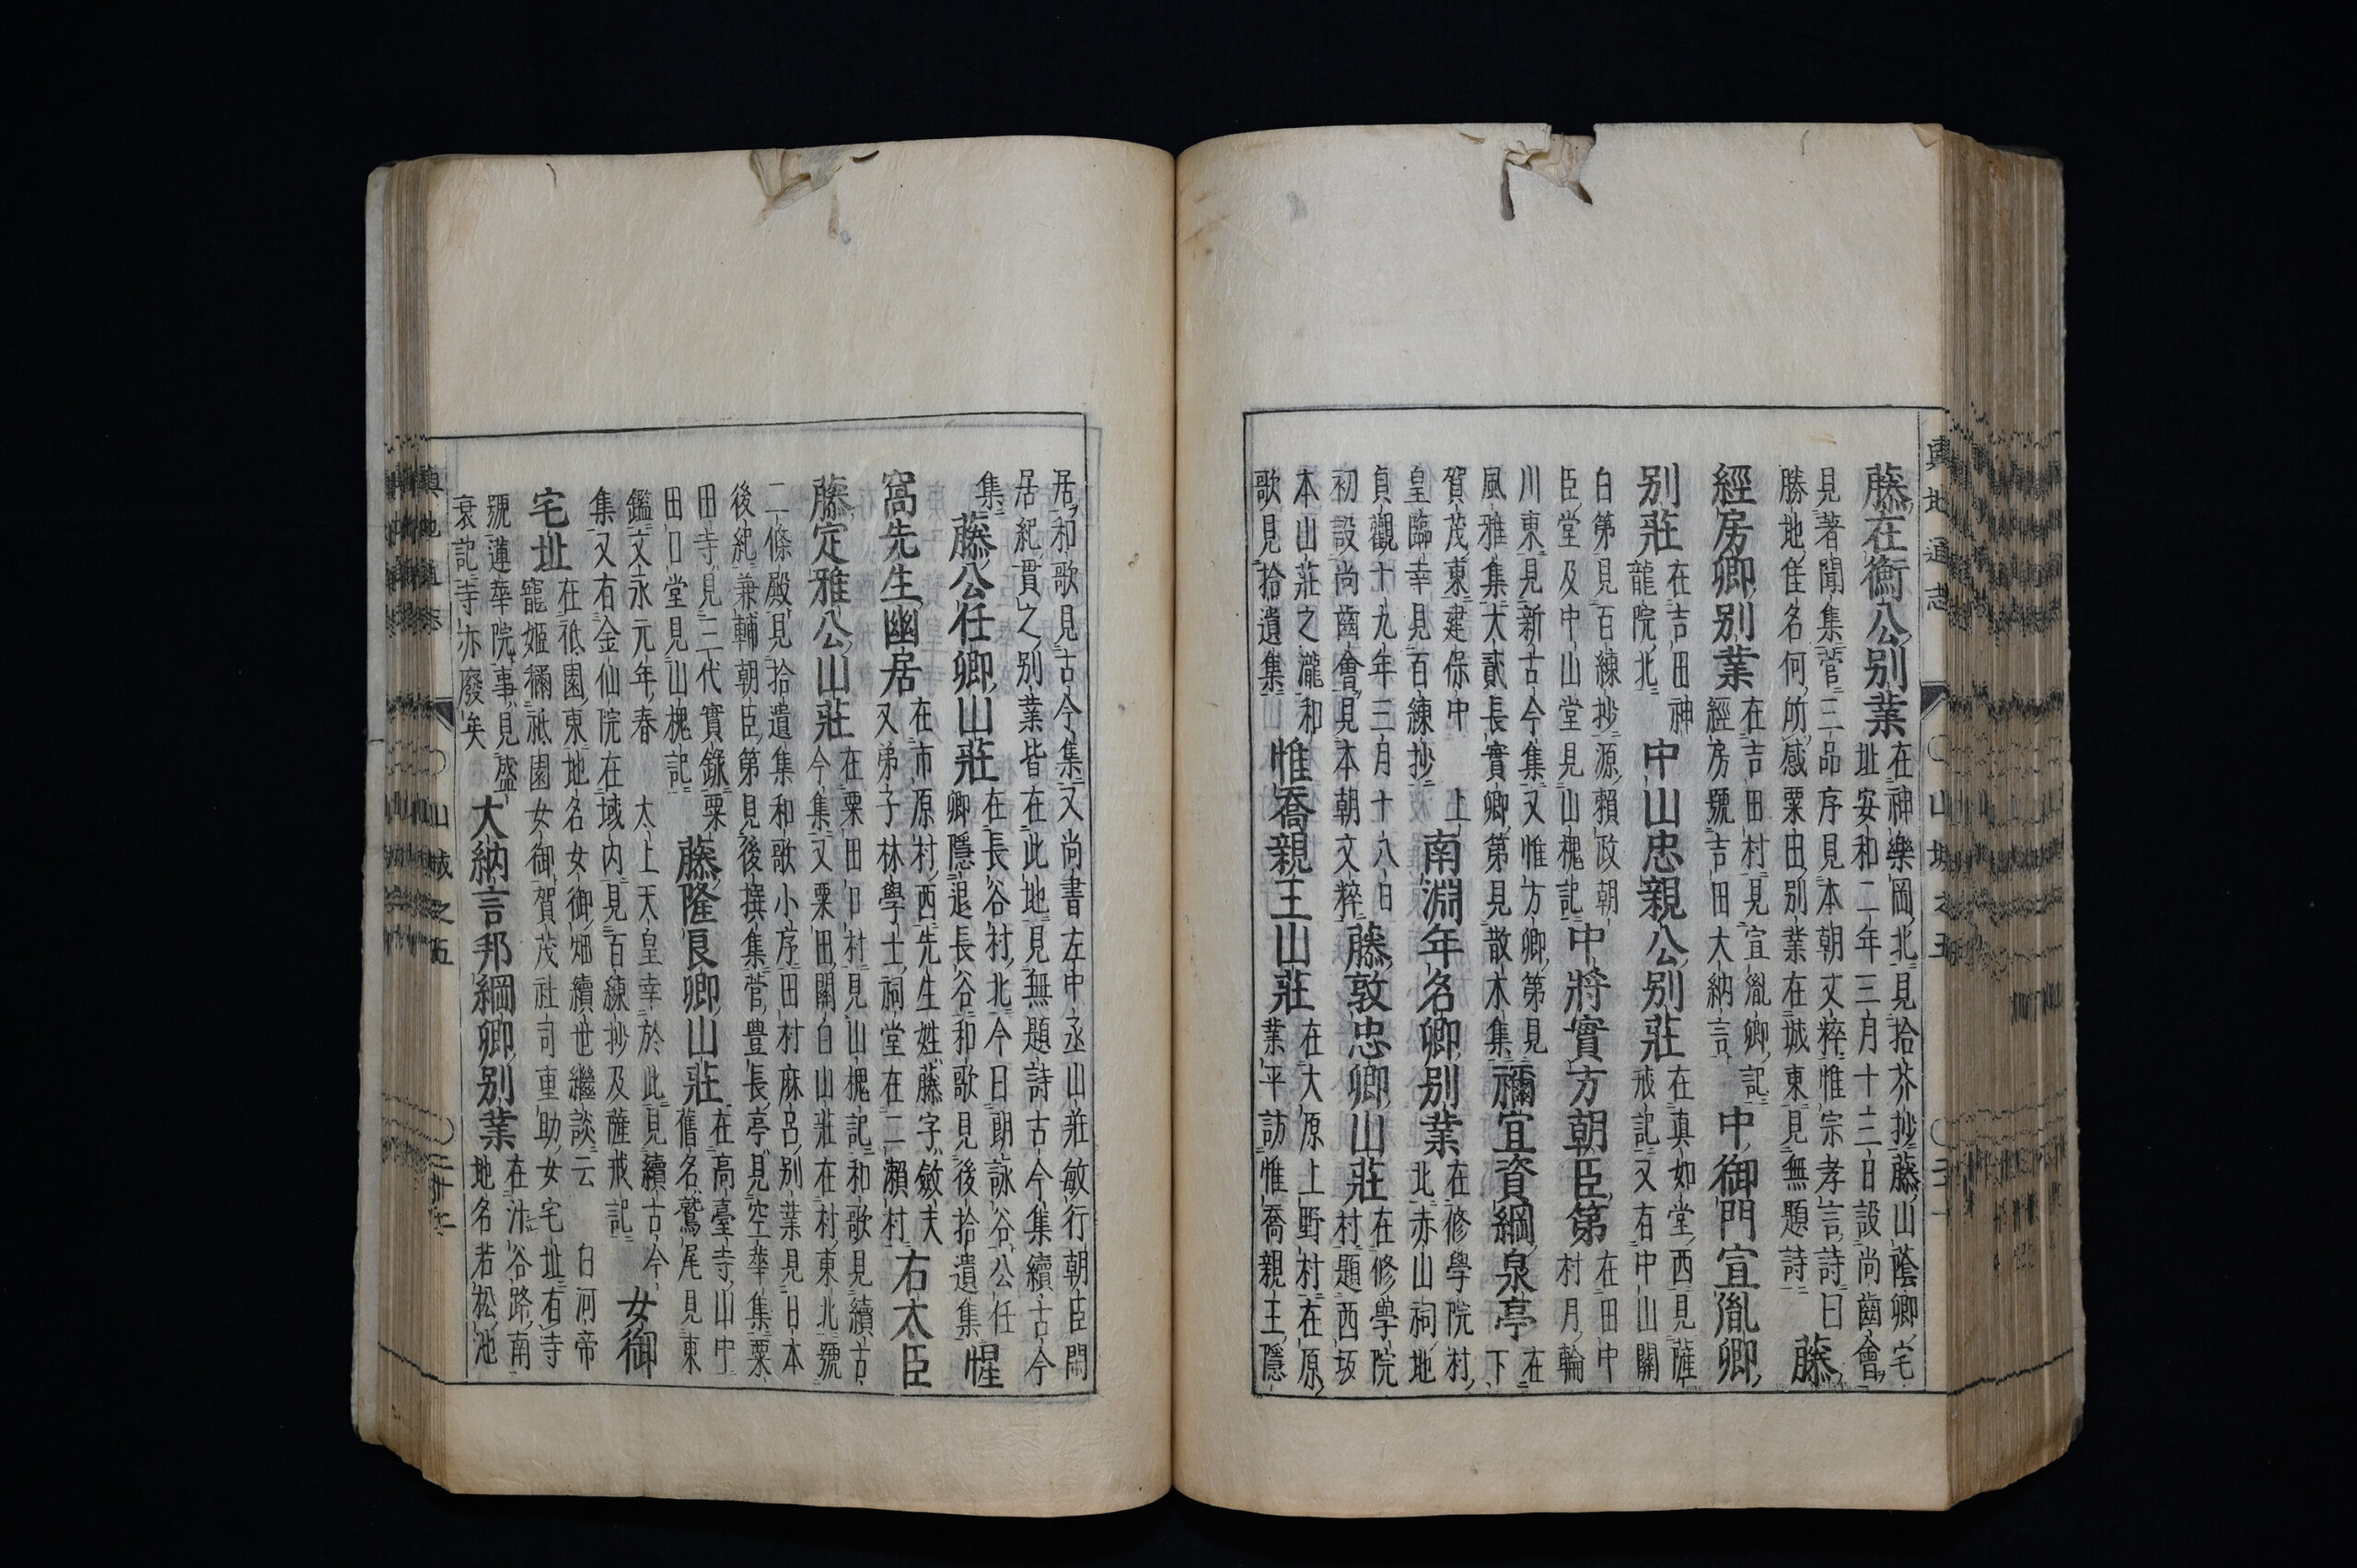 輿地通志 山城之五
藤在衡公別業
在神樂岡北見拾芥抄藤山蔭卿宅
址安和二年三月十三日設尚齒會
見著聞集菅三品序見本朝文粹惟宗孝言詩曰
勝地隹名何所感粟田別業在城東見無題詩
藤
經房卿別業
在吉田村見宣胤卿記
經房號吉田大納言
中御門宣胤卿
別莊
在吉田神
龍院北
中山忠親公別莊
在真如堂西見薩
戒記又有中山關
白第見百練抄源賴政朝
臣堂及中山堂見山槐記
中將實方朝臣第
在田中
村月輪
川東見新古今集又惟方卿第見
風雅集大貳長實卿第見散木集
禰宜資綱泉亭
在
下
賀茂東建保中上
皇臨幸見百練抄
南淵年名卿別業
在修學院村
北赤山祠地
貞觀十九年三月十八日
初設尚齒會見本朝文粹
藤敦忠卿山莊
在修學院
村題西坂
本山莊之瀧和
歌見拾遺集
惟喬親王山莊
在大原上野村在原
業平訪惟喬親王隱
居和歌見古今集又尚書左中丞山莊敏行朝臣閑
居紀貫之別業皆在此地見無題詩古今集續古今
集
藤公任卿山莊
在長谷村北今日朗詠谷公任
卿隱退長谷和歌見後拾遺集
惺
窩先生幽居
在市原村西先生姓藤字斂夫
又弟子林學士祠堂在二瀨村
右太臣
藤定雅公山莊
在粟田口村見山槐記和歌見續古
今集又粟田關白山莊在村東北號
二條殿見拾遺集和歌小序田村麻呂別業見日本
後紀兼輔朝臣第見後撰集菅豊長亭見空華集粟
田寺見三代實錄粟
田口堂見山槐記
藤隆良卿山莊
在高臺寺山中
舊名鷲尾見東
鑑文永元年春太上天皇幸於此見續古今
集又有金仙院在域内見百練抄及薩戒記
女御
宅址
在祇園東地名女御畑續世繼談云白河帝
寵姬稱祇園女御賀茂社司重助女宅址有寺
號蓮華院事見盛
衰記寺亦廢矣
大納言邦綱卿別業
在汁谷路南
地名若松池
輿地通志 山城之五